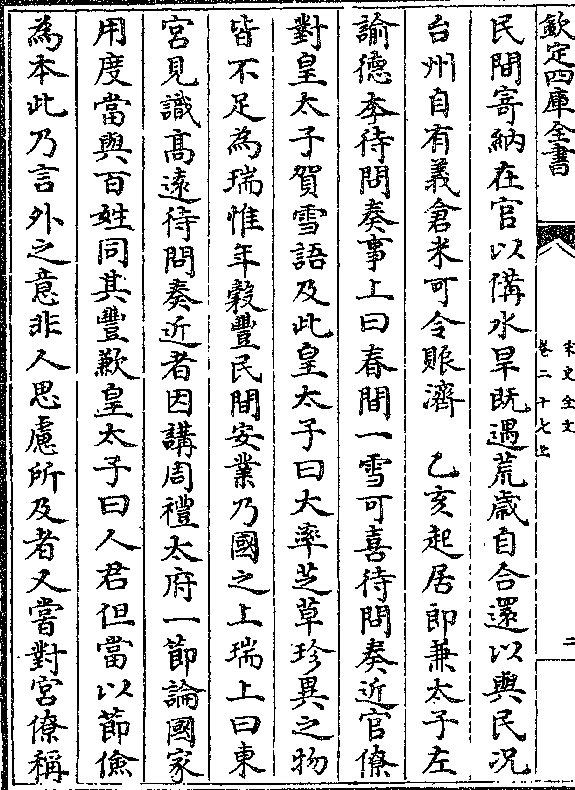 欽定四庫全書
宋史全文
卷二十七上
二
民間寄納在官以備水旱既遇荒歳自合還以與民況
台州自有義倉米可令賑濟 乙亥起居郎兼太子左
諭德李待問奏事上曰春間一雪可喜待問奏近官僚
對皇太子賀雪語及此皇太子曰大率芝草珍異之物
皆不足為瑞惟年穀豐民間安業乃國之上瑞上曰東
宮見識髙遠待問奏近者因講周禮太府一節論國家
用度當與百姓同其豐歉皇太子曰人君但當以節儉
為本此乃言外之意非人思慮所及者又嘗對宮僚稱